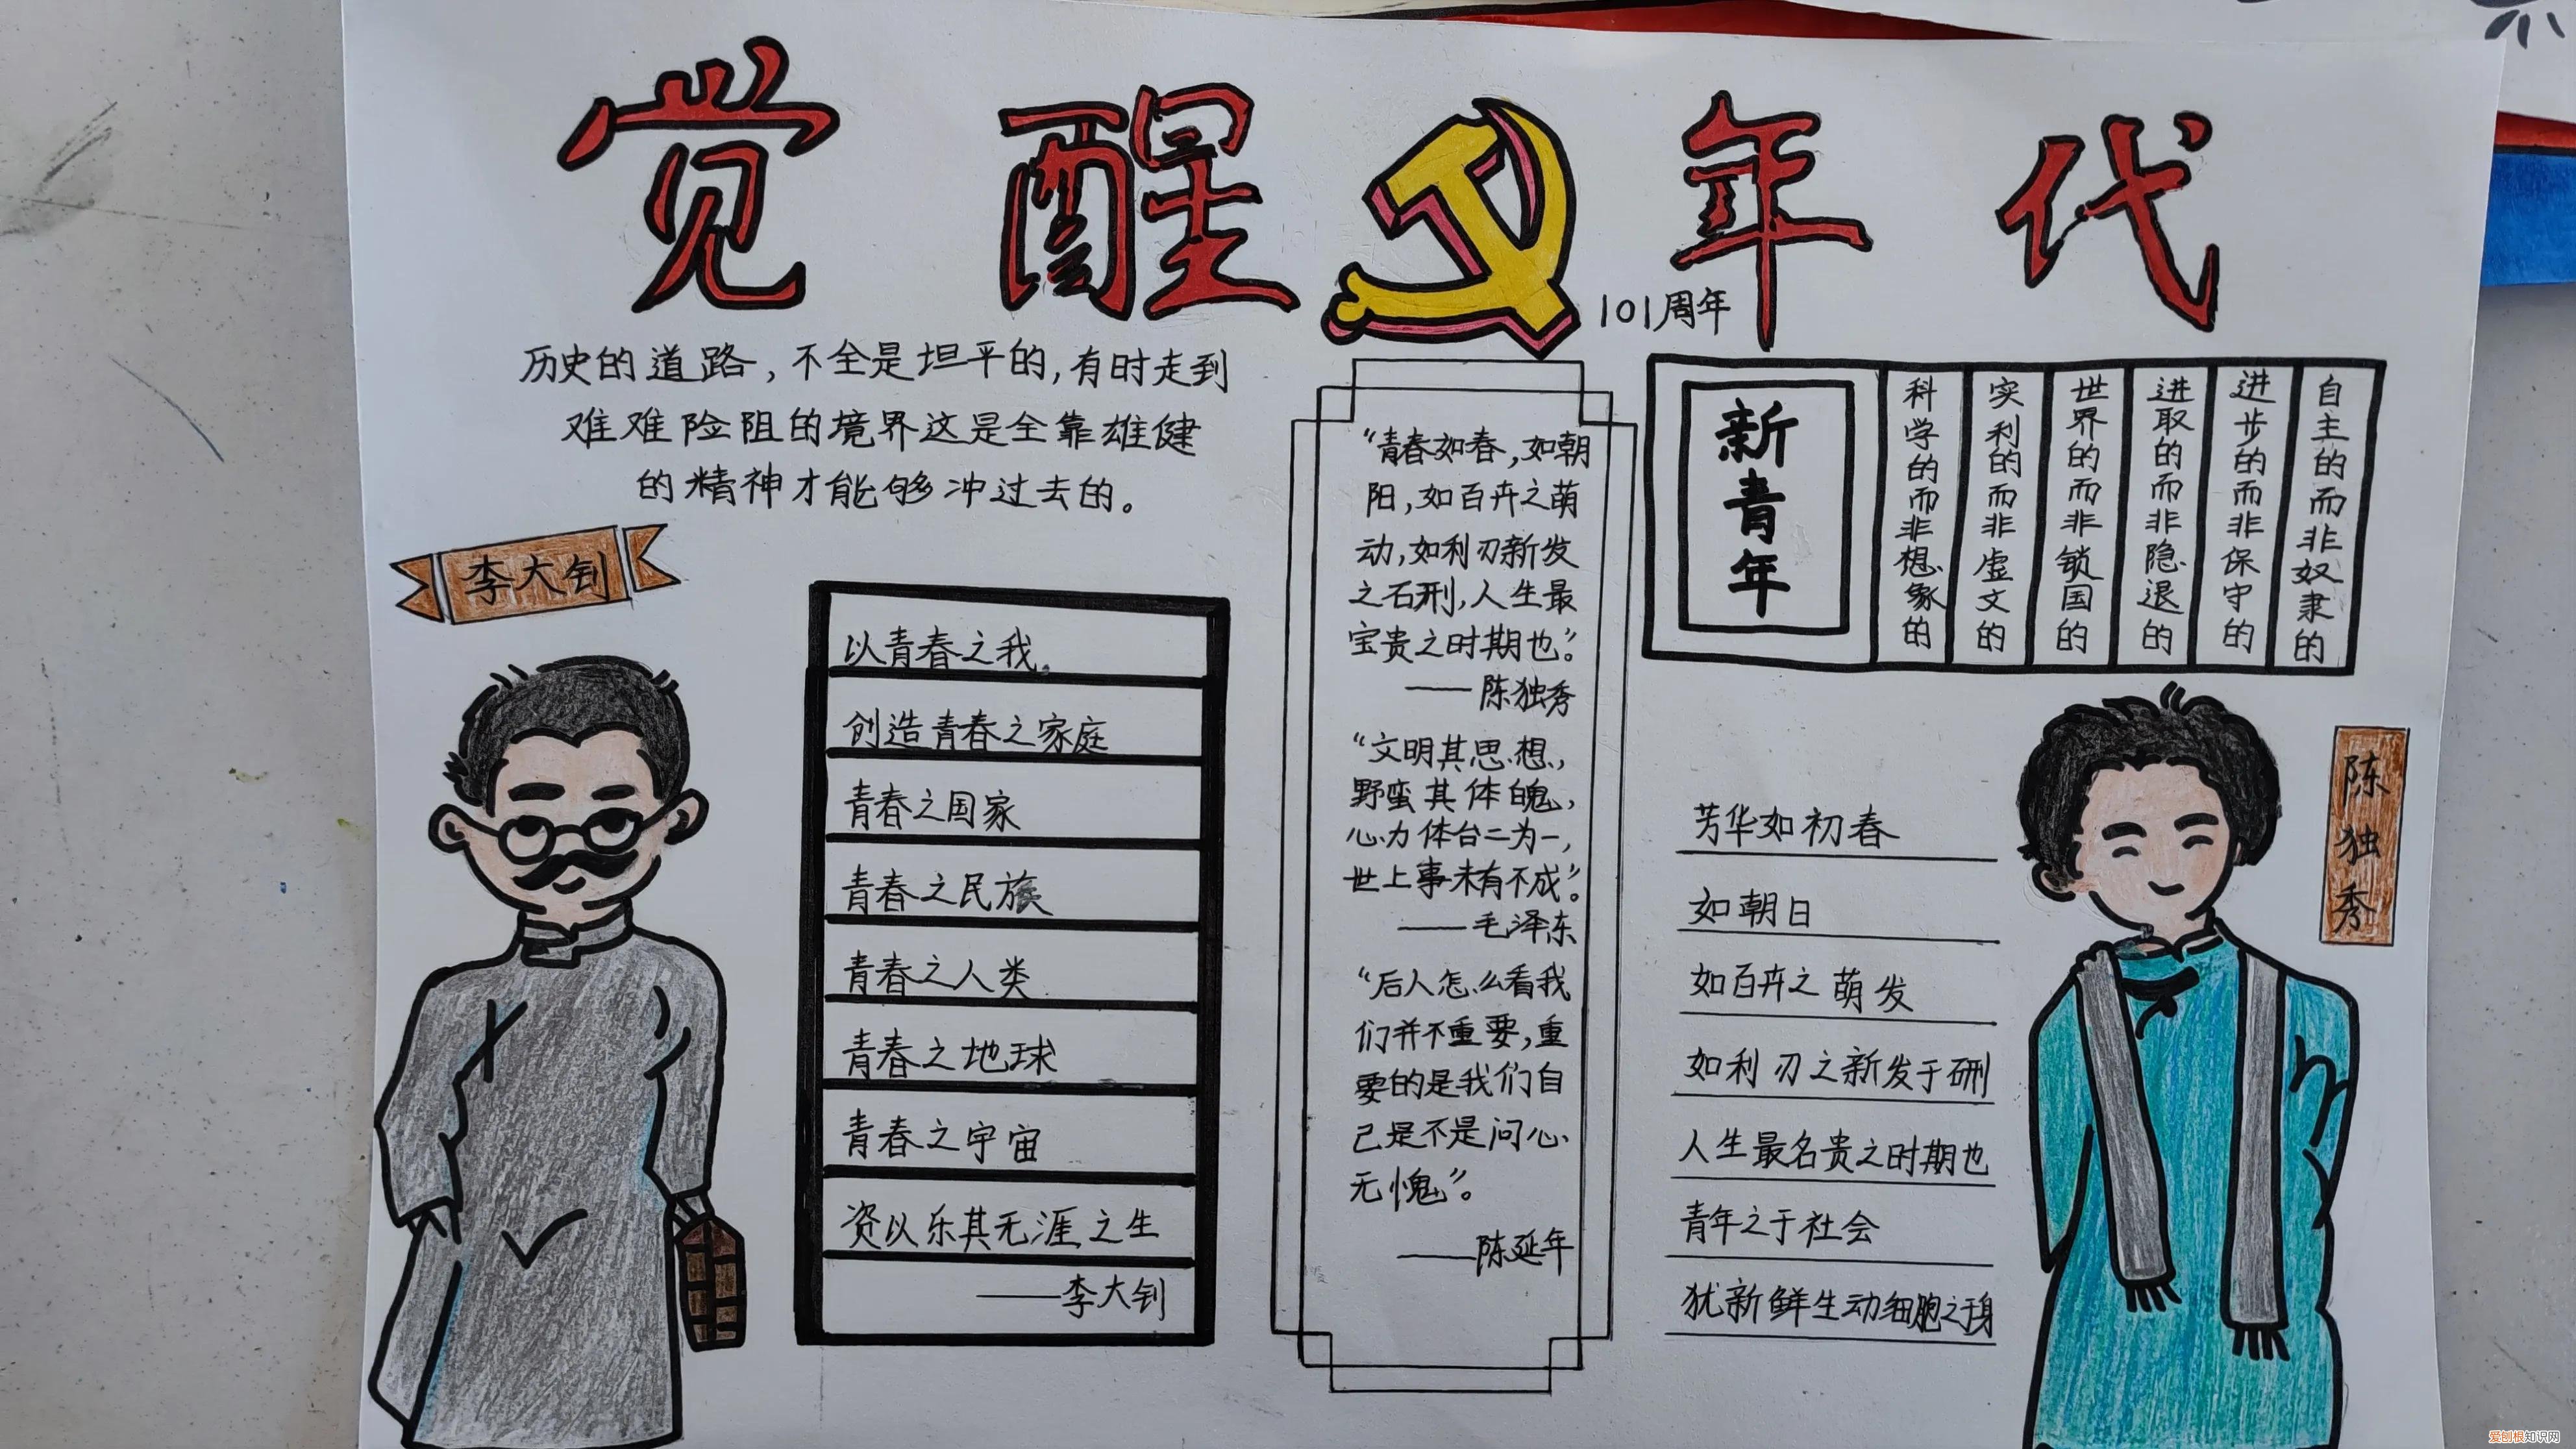 觉醒年代
101周年
历史的道路，不全是坦平的，有时走到
难难险阻的境界这是全靠雄健
的精神才能够冲过去的。
李大钊
以青春之我
创造青春之家庭
青春之国家
青春之民族
青春之人类
青春之地球
青春之宇宙
资以乐其无涯之生
——李大钊
“青春如春，如朝
阳，如百卉之萌
动，如利刃新发
之石刑，人生最
宝贵之时期也”。
——陈独秀
“文明其思想，
野蛮其体魄，
心力体台二为一，
世上事未有不成”。
——毛泽东
“后人怎么看我
们并不重要，重
要的是我们自
己是不是问心
无愧”。
——陈延年
新青年
科学的而非想象的
实利的而非虚文的
世界的而非锁国的
进取的而非隐退的
进步的而非保守的
自主的而非奴隶的
陈独秀
芳华如初春
如朝日
如百卉之萌发
如利刃之新发于硎
人生最名贵之时期也
青年之于社会
犹新鲜生动细胞之于身
爱刨根知识网